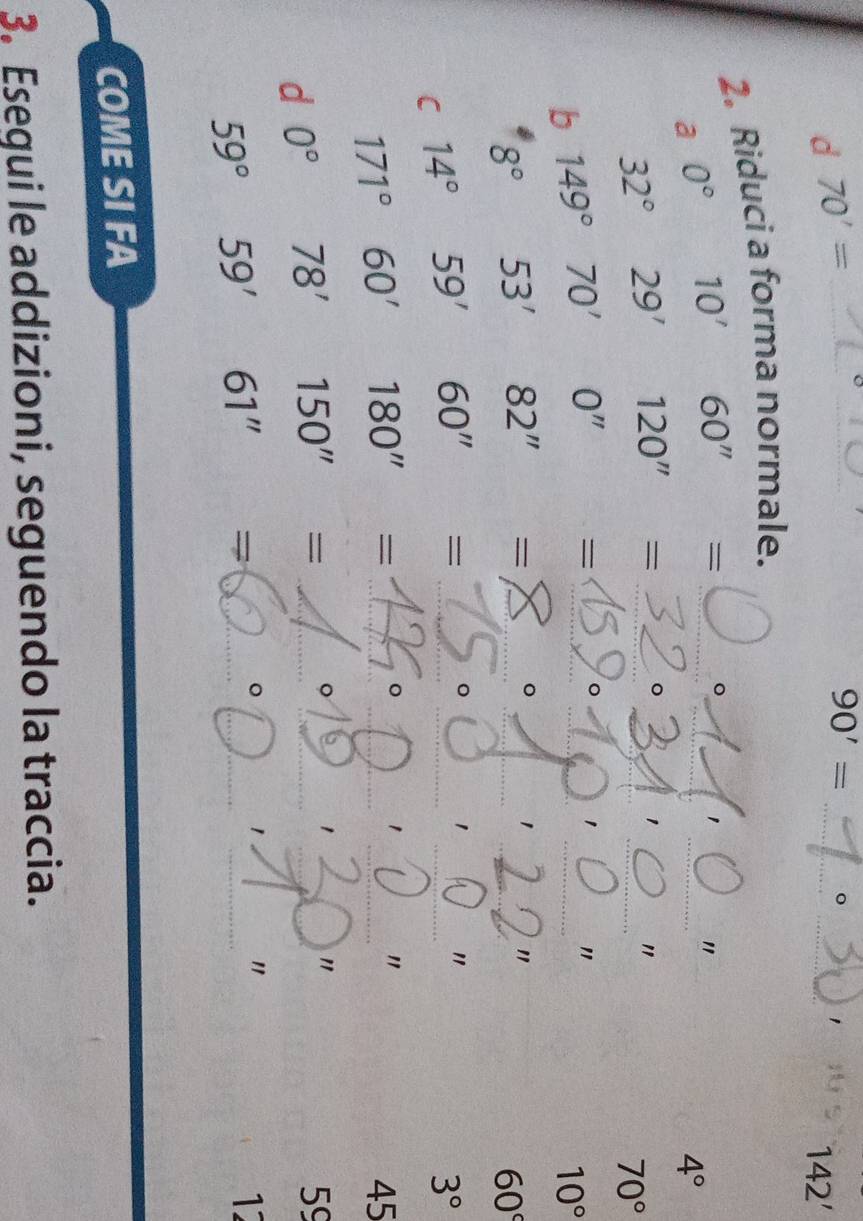 d 70' = 1 ° 10 ' 90' = 1 ° 30 ' 142'
2. Riduci a forma normale.
a 0° 10' 60" = 0 ° 11 ' 0 " 4°
32° 29' 120" = 32 ° 31 ' 0 " 70°
b 149° 70' 0" = 159 ° 10 ' 0 " 10°
8° 53' 82" = 8 ° 1 ' 22 " 60°
c 14° 59' 60" = 15 ° 0 ' 0 " 3°
171° 60' 180" = ° 0 ' 0 " 45
d 0° 78' 150" = 1 ° ' 30 " 59
59° 59' 61" = 60 ° 0 ' 1 " 12
COME SI FA
3. Esegui le addizioni, seguendo la traccia.